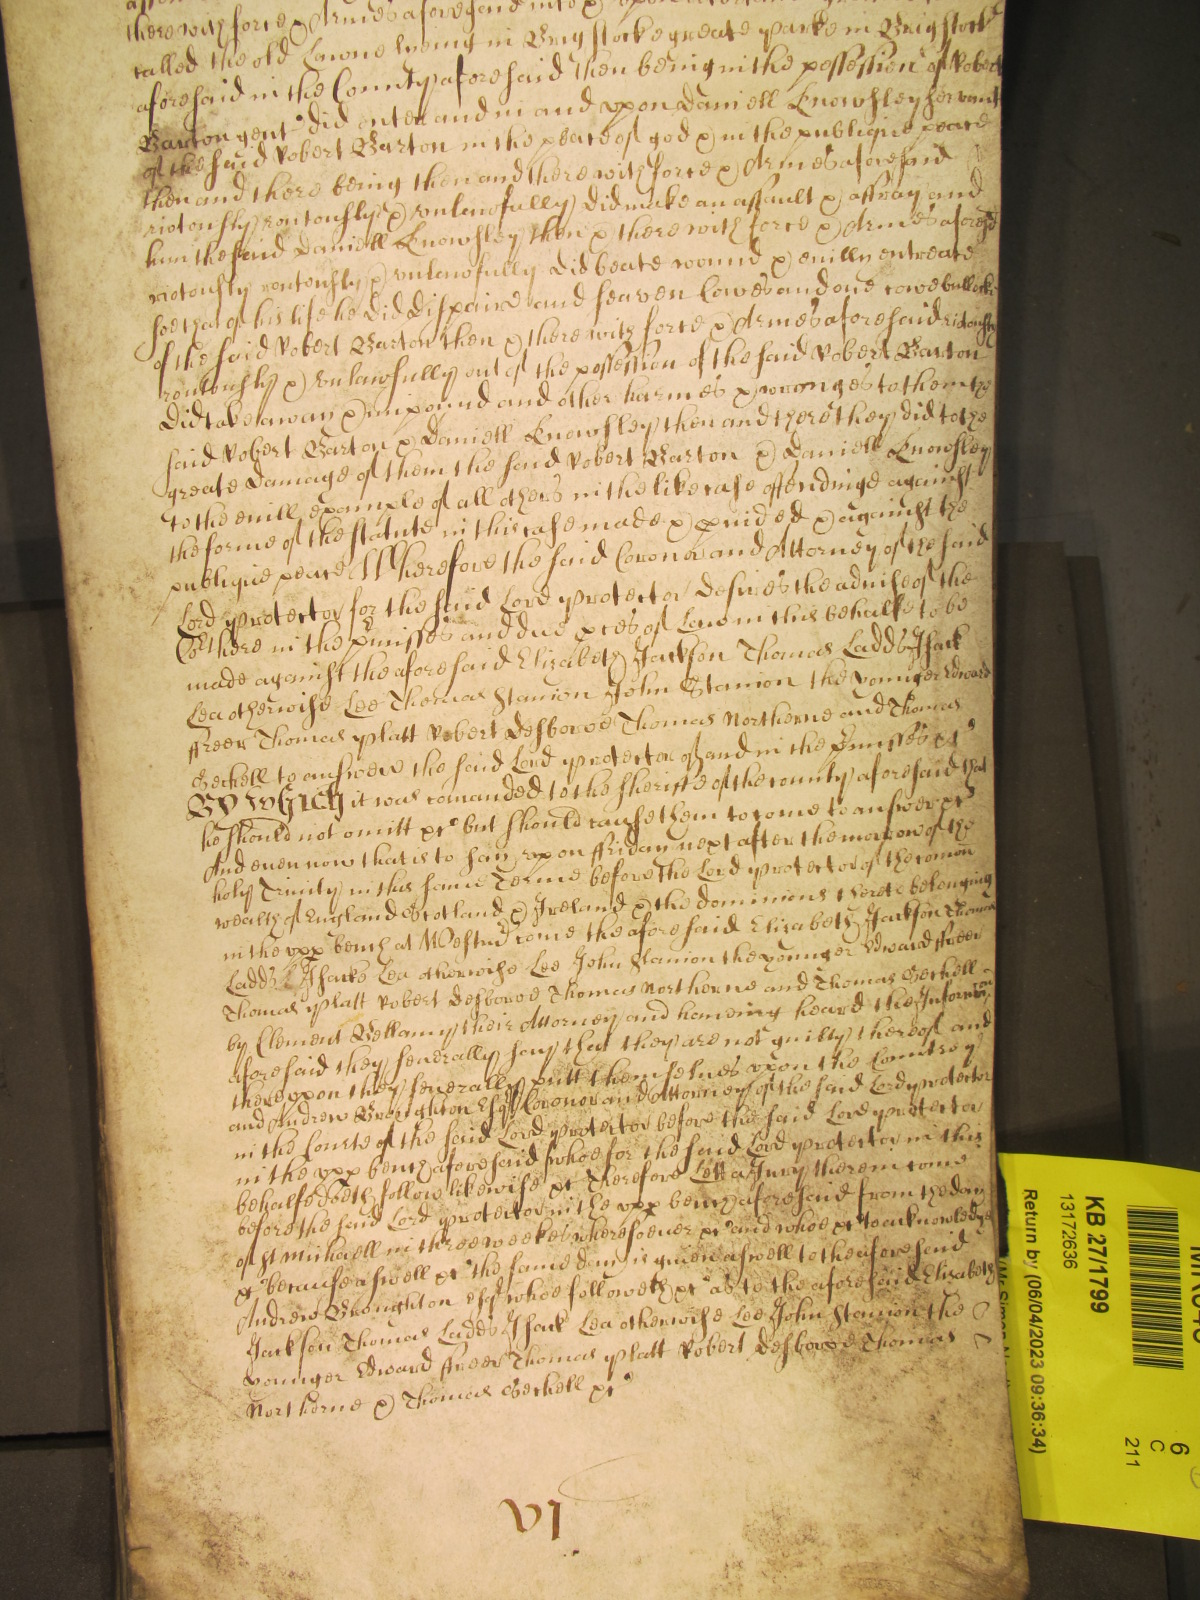 there with force & Armes aforesaid into
called the old Lawne lyeing in Brigstocke greate parke in Brigstock
aforesaid in the County aforesaid then being in the possession of Robert
Barton gent did enter and in and vpon Daniell Knowsley servant
of the said Robert Barton in the peace of god & in the publique peace
then and there being then and there with force & Armes aforesaid
riotously routously & vnlawfully did make an assault & affray and
him the said Daniell Knowsley then & there with force & Armes aforesd
riotously routously & vnlawfully did beate wound & euilly entreate
soe that of his life he did dispaire and seaven Cowes and one cowe bullocke
of the said Robert Barton then & there with force & Armes aforesaid riotously
routously & vnlawfully out of the possession of the said Robert Barton
did take away & impound and other harmes & wronges to them the
said Robert Barton & Daniell Knowsley then and there they did to the
greate damage of them the said Robert Barton & Daniell Knowsley
to the euill example of all others in the like case offendinge against
the forme of the statute in this case made & pvided & against the
publique peace Wherefore the said Coronor and Attorney of the said
Lord protector for the said Lord protector desires the advise of the
Cort here in the pmisses and due pces of Law in this behalfe to be
made against the aforesaid Elizabeth Jackson Thomas Ladds Isack
Lea otherwise Lee Thomas Stanion John Stanion the younger Edward
ffreer Thomas Platt Robert Desborow Thomas Northerne and Thomas
Beckell to answer the said Lord protector of and in the pmisses &c
By which it was comanded to the sheriffe of the county aforesaid that
he should not omitt &c but should cause them to come to answer &c
And even now that is to say vpon ffriday next after the morrow of the
holy Trinity in this same Terme before the Lord protector of the comon
wealth of England Scotland & Ireland & the dominions thereto belonging
in the vpp bench at Westmr come the aforesaid Elizabeth Jackson Thomas
Ladds Isacke Lea otherwise Lee John Stanion the younger Edward ffreer
Thomas Platt Robert Desborow Thomas Northerne and Thomas Beckell
by Clement Bellamy their Attorney and haveing heard the Informacon
aforesaid they severally say that they are not guilty thereof and
therevpon they severally putt themselves vpon the Countrey
and Andrew Broughton Esqr Coronor and Attorney of the said Lord protector
in the Courte of the said Lord protector before the said Lord protector
in the vpp bench aforesaid whoe for the said Lord protector in this
behalfe doeth follow likewise &c Therefore Lett a Jury therein come
before the said Lord protector in the vpp bench aforesaid from the day
of St Michaell in three weekes wheresoever &c and whoe &c to acknowledge
&c because aswell &c the same day is given aswell to the aforesaid
Andrew Broughton esqr whoe followeth &c as to the aforesaid Elizabeth
Jackson Thomas Ladds Isack Lea otherwise Lee John Stanion the
younger Edward ffreer Thomas Platt Robert Desborow Thomas
Northerne & Thomas Beckell &c
VI
KB 27/1799
13172636
Return by (06/04/2023 09:36:34)
6
C
211